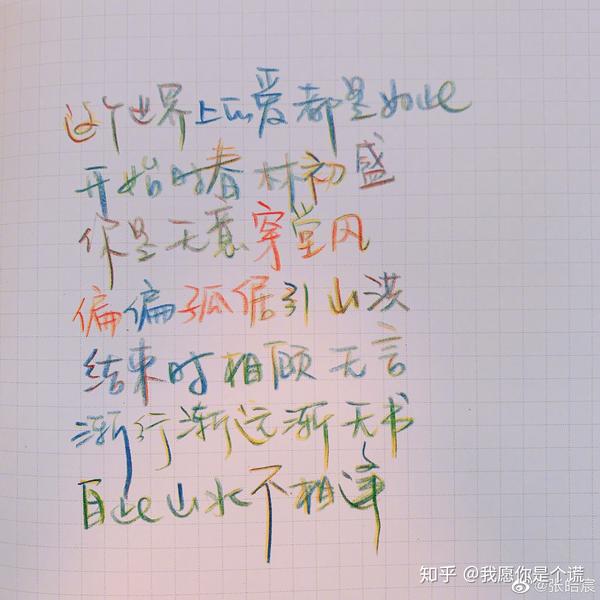 这个世界上的爱都是如此
开始时春林初盛
你是无意穿堂风
偏偏孤倨引山洪
结束时相顾无言
渐行渐远渐无书
自此山水不相逢
知乎 @我愿你是个谎
@张皓宸